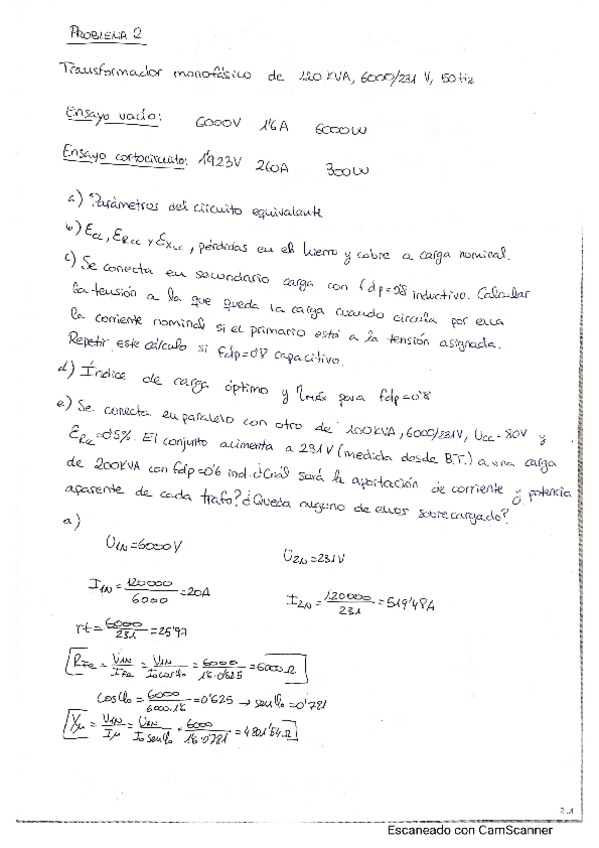 PROBLEMA 2
Transformador monofásico de 120 KVA, 6000/231 V, 50 Hz
Ensayo vacío: 6000V 1'6A 6000W
Ensayo cortocircuito: 1'923V 260A 300W
a) Parámetros del circuito equivalente
b) Ecc, ERcc y EXcc, pérdidas en el hierro y cobre a carga nominal.
c) Se conecta en secundario carga con fdp=0'8 inductivo. Calcular
la tensión a la que queda la carga cuando circula por ella
la corriente nominal si el primario está a la tensión asignada.
Repetir este cálculo si fdp=0'8 capacitivo.
d) Índice de carga óptimo y ηmáx para fdp=0'8
e) Se conecta en paralelo con otro de 100KVA, 6000/231V, Ucc=80V y
ERcc=0'5%. El conjunto alimenta a 231V (medida desde B.T.) a una carga
de 200KVA con fdp=0'6 ind. ¿Cuál será la aportación de corriente y potencia
aparente de cada trafo? ¿Queda alguno de ellos sobrecargado?
a)
U1N=6000V U2N=231V
I1N=120000/6000=20A I2N=120000/231=519'48A
rt=6000/231=25'97
RFe=U1N/IFe=U1N/I0cosφ0=6000/1'6·0'625=6000Ω
cosφ0=6000/6000·1'6=0'625 → senφ0=0'781
Xμ=U1N/Iμ=U1N/I0senφ0=6000/1'6·0'781=4801'54Ω
2.1
Escaneado con CamScanner